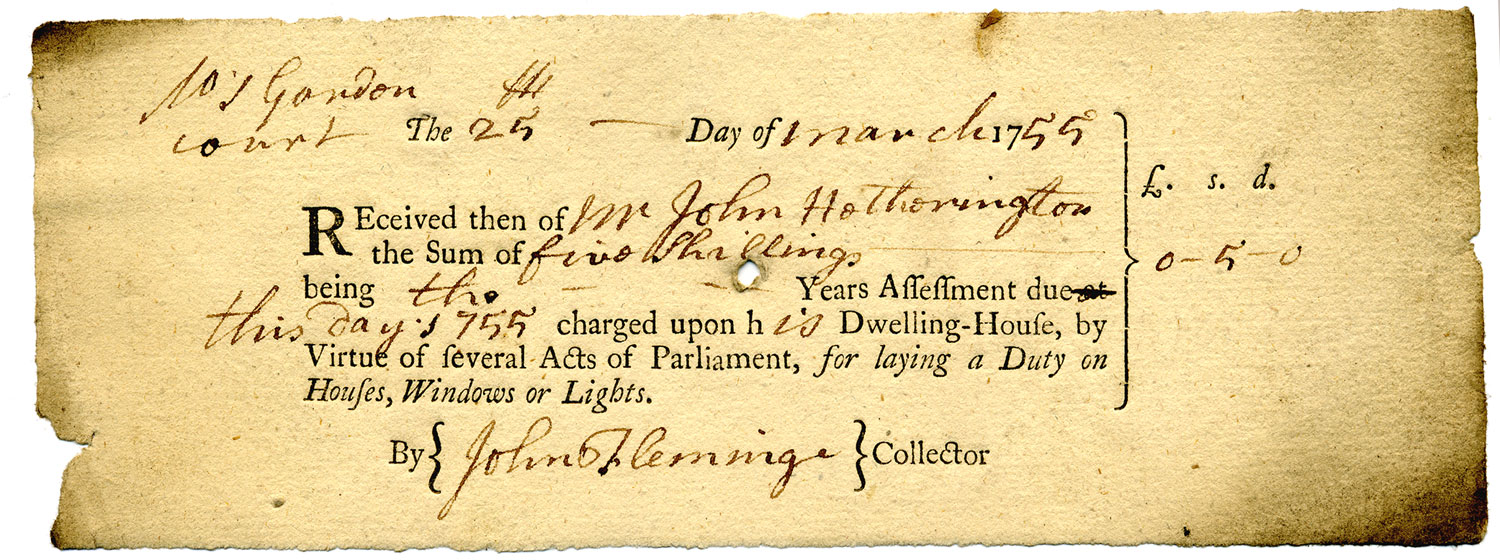 Gordon
court The 25 th Day of march 1755
£. s. d.
REceived then of Mr John Hetherington
the Sum of five Shillings 0-5-0
being the Years Aſſeſſment due at
this day 1755 charged upon h is Dwelling-Houſe, by
Virtue of ſeveral Acts of Parliament, for laying a Duty on
Houſes, Windows or Lights.
By { John Fleminge } Collector